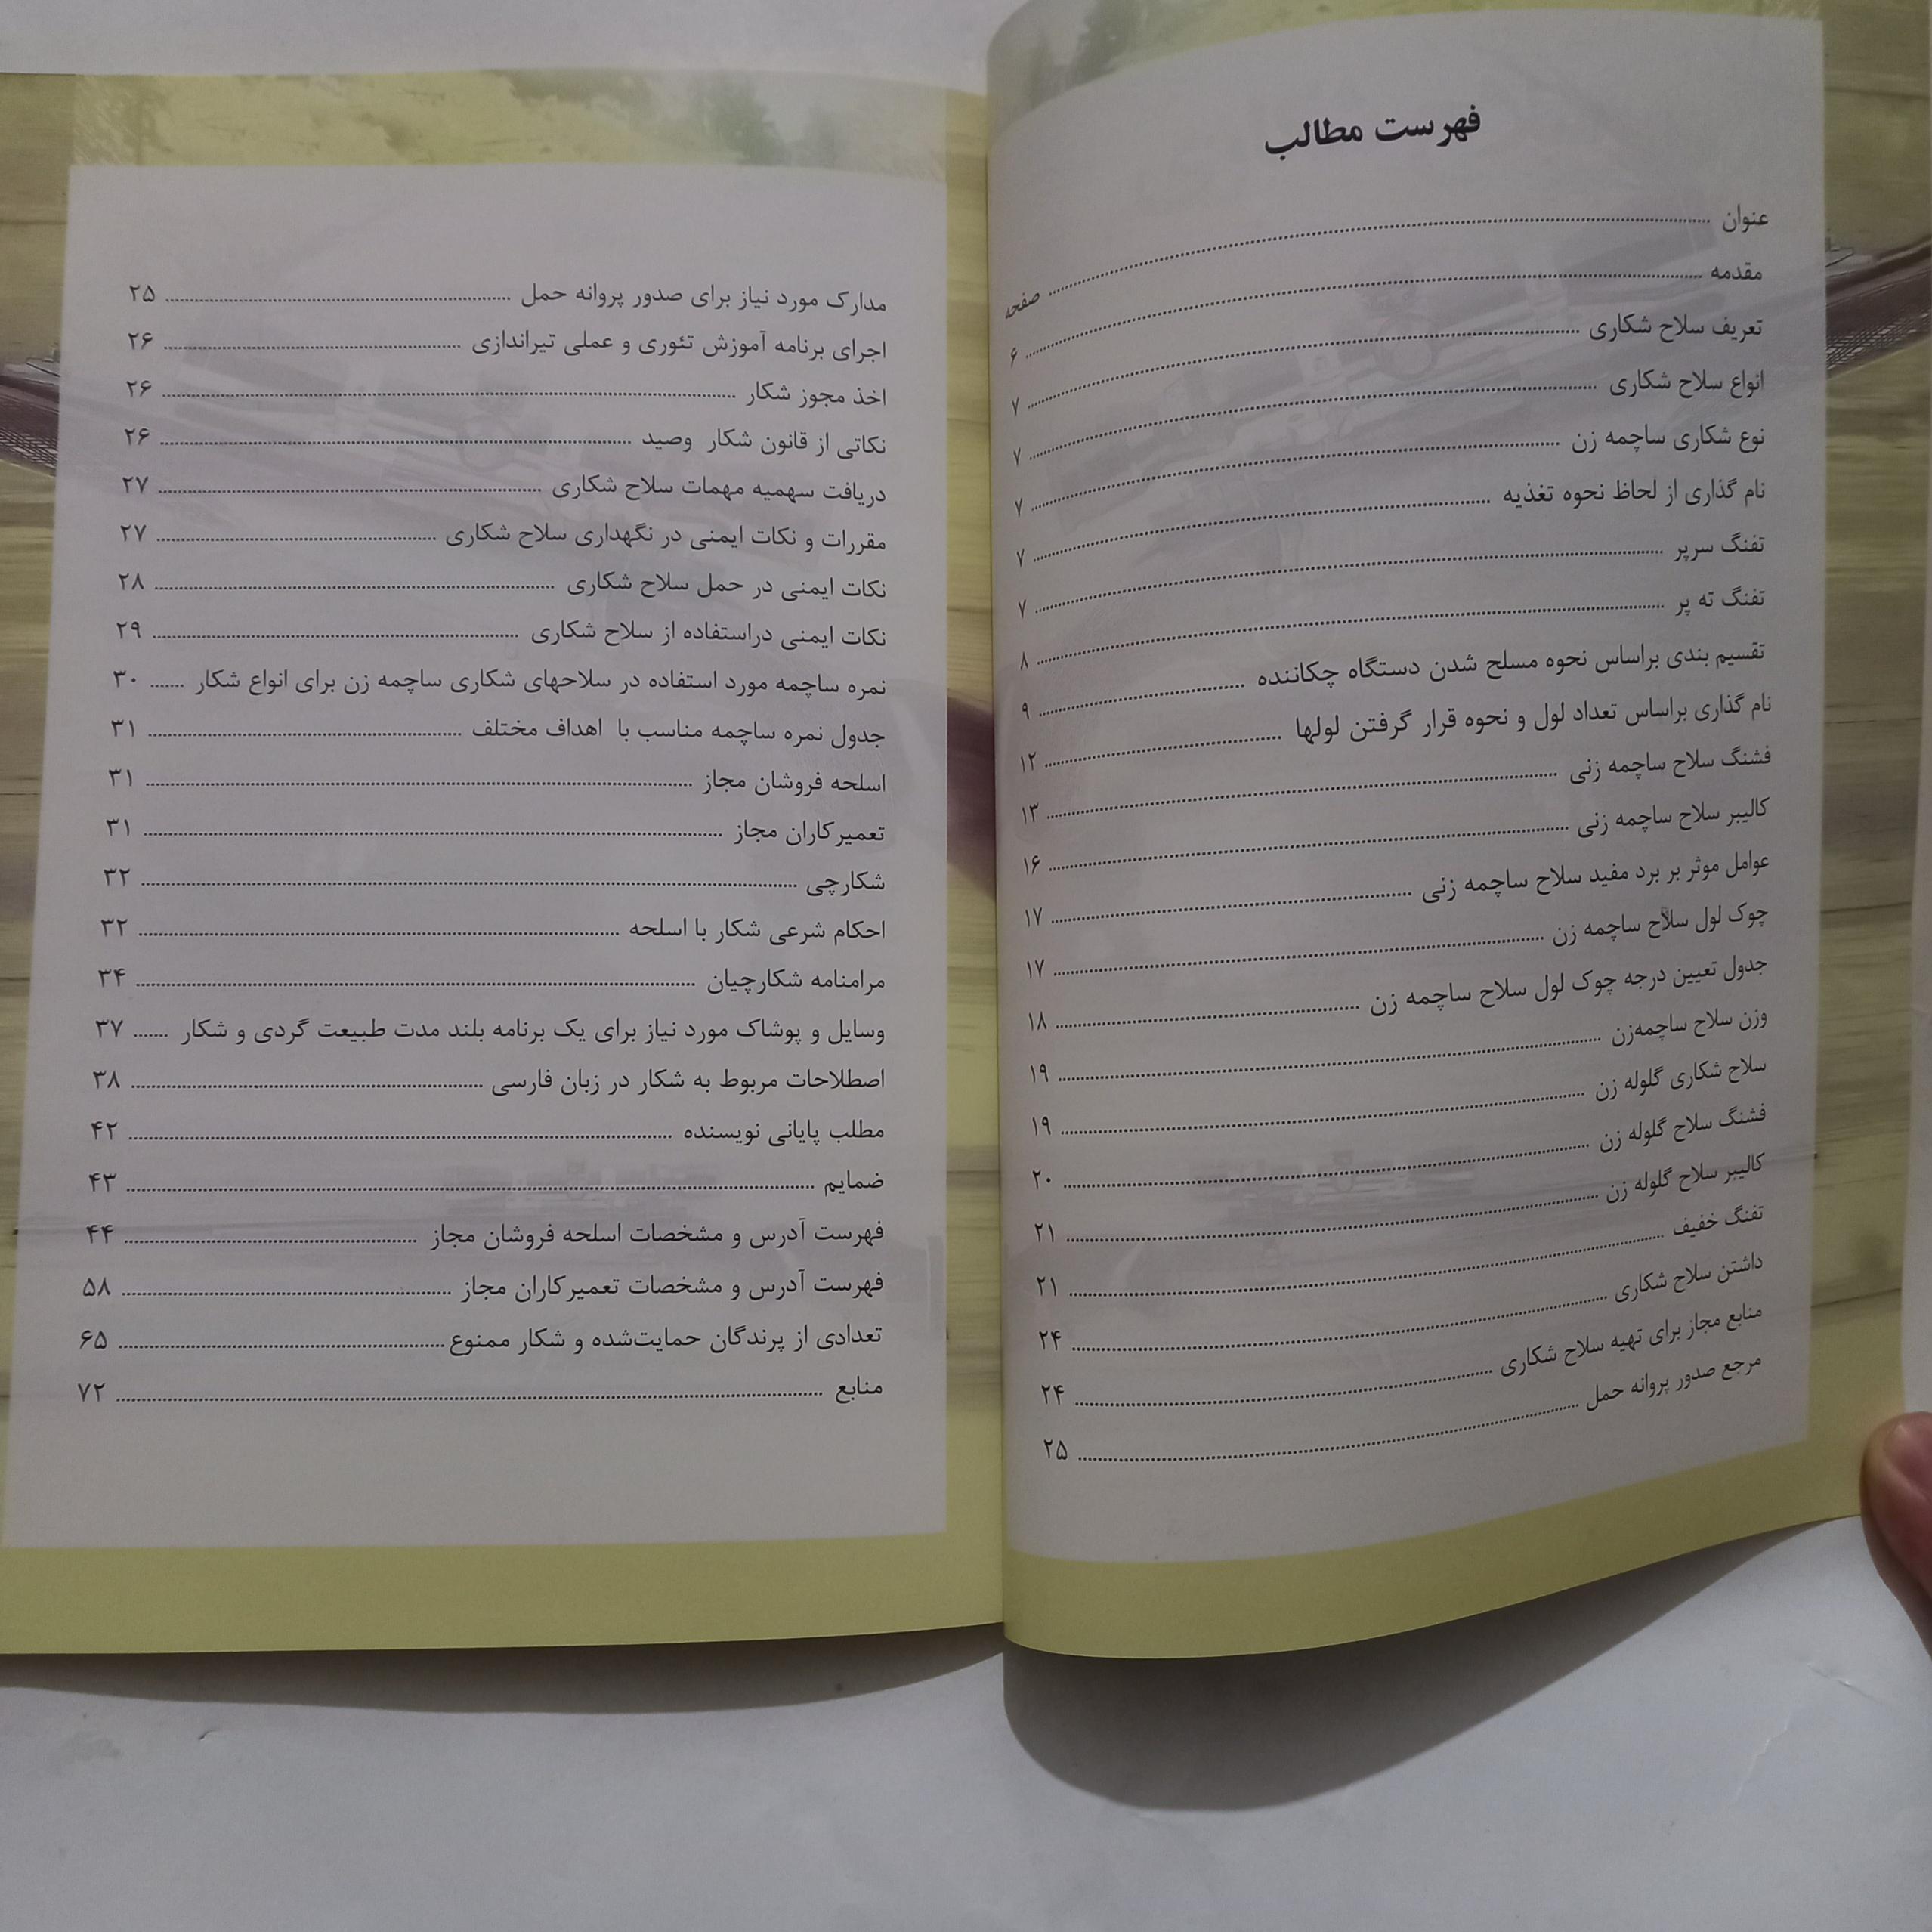 فهرست مطالب
عنوان ........ صفحه
مقدمه ........ ۶
تعریف سلاح شکاری ........ ۷
انواع سلاح شکاری ........ ۷
نوع شکاری ساچمه زن ........ ۷
نام گذاری از لحاظ نحوه تغذیه ........ ۷
تفنگ سرپر ........ ۷
تفنگ ته پر ........ ۸
تقسیم بندی براساس نحوه مسلح شدن دستگاه چکاننده ........ ۹
نام گذاری براساس تعداد لول و نحوه قرار گرفتن لولها ........ ۱۲
فشنگ سلاح ساچمه زنی ........ ۱۳
کالیبر سلاح ساچمه زنی ........ ۱۶
عوامل موثر بر برد مفید سلاح ساچمه زنی ........ ۱۷
چوک لول سلاح ساچمه زن ........ ۱۷
جدول تعیین درجه چوک لول سلاح ساچمه زن ........ ۱۸
وزن سلاح ساچمه‌زن ........ ۱۹
سلاح شکاری گلوله زن ........ ۱۹
فشنگ سلاح گلوله زن ........ ۲۰
کالیبر سلاح گلوله زن ........ ۲۱
تفنگ خفیف ........ ۲۱
داشتن سلاح شکاری ........ ۲۴
منابع مجاز برای تهیه سلاح شکاری ........ ۲۴
مرجع صدور پروانه حمل ........ ۲۵
مدارک مورد نیاز برای صدور پروانه حمل ........ ۲۵
اجرای برنامه آموزش تئوری و عملی تیراندازی ........ ۲۶
اخذ مجوز شکار ........ ۲۶
نکاتی از قانون شکار وصید ........ ۲۶
دریافت سهمیه مهمات سلاح شکاری ........ ۲۷
مقررات و نکات ایمنی در نگهداری سلاح شکاری ........ ۲۷
نکات ایمنی در حمل سلاح شکاری ........ ۲۸
نکات ایمنی دراستفاده از سلاح شکاری ........ ۲۹
نمره ساچمه مورد استفاده در سلاحهای شکاری ساچمه زن برای انواع شکار ........ ۳۰
جدول نمره ساچمه مناسب با اهداف مختلف ........ ۳۱
اسلحه فروشان مجاز ........ ۳۱
تعمیرکاران مجاز ........ ۳۱
شکارچی ........ ۳۲
احکام شرعی شکار با اسلحه ........ ۳۲
مرامنامه شکارچیان ........ ۳۴
وسایل و پوشاک مورد نیاز برای یک برنامه بلند مدت طبیعت گردی و شکار ........ ۳۷
اصطلاحات مربوط به شکار در زبان فارسی ........ ۳۸
مطلب پایانی نویسنده ........ ۴۲
ضمایم ........ ۴۳
فهرست آدرس و مشخصات اسلحه فروشان مجاز ........ ۴۴
فهرست آدرس و مشخصات تعمیرکاران مجاز ........ ۵۸
تعدادی از پرندگان حمایت‌شده و شکار ممنوع ........ ۶۵
منابع ........ ۷۲